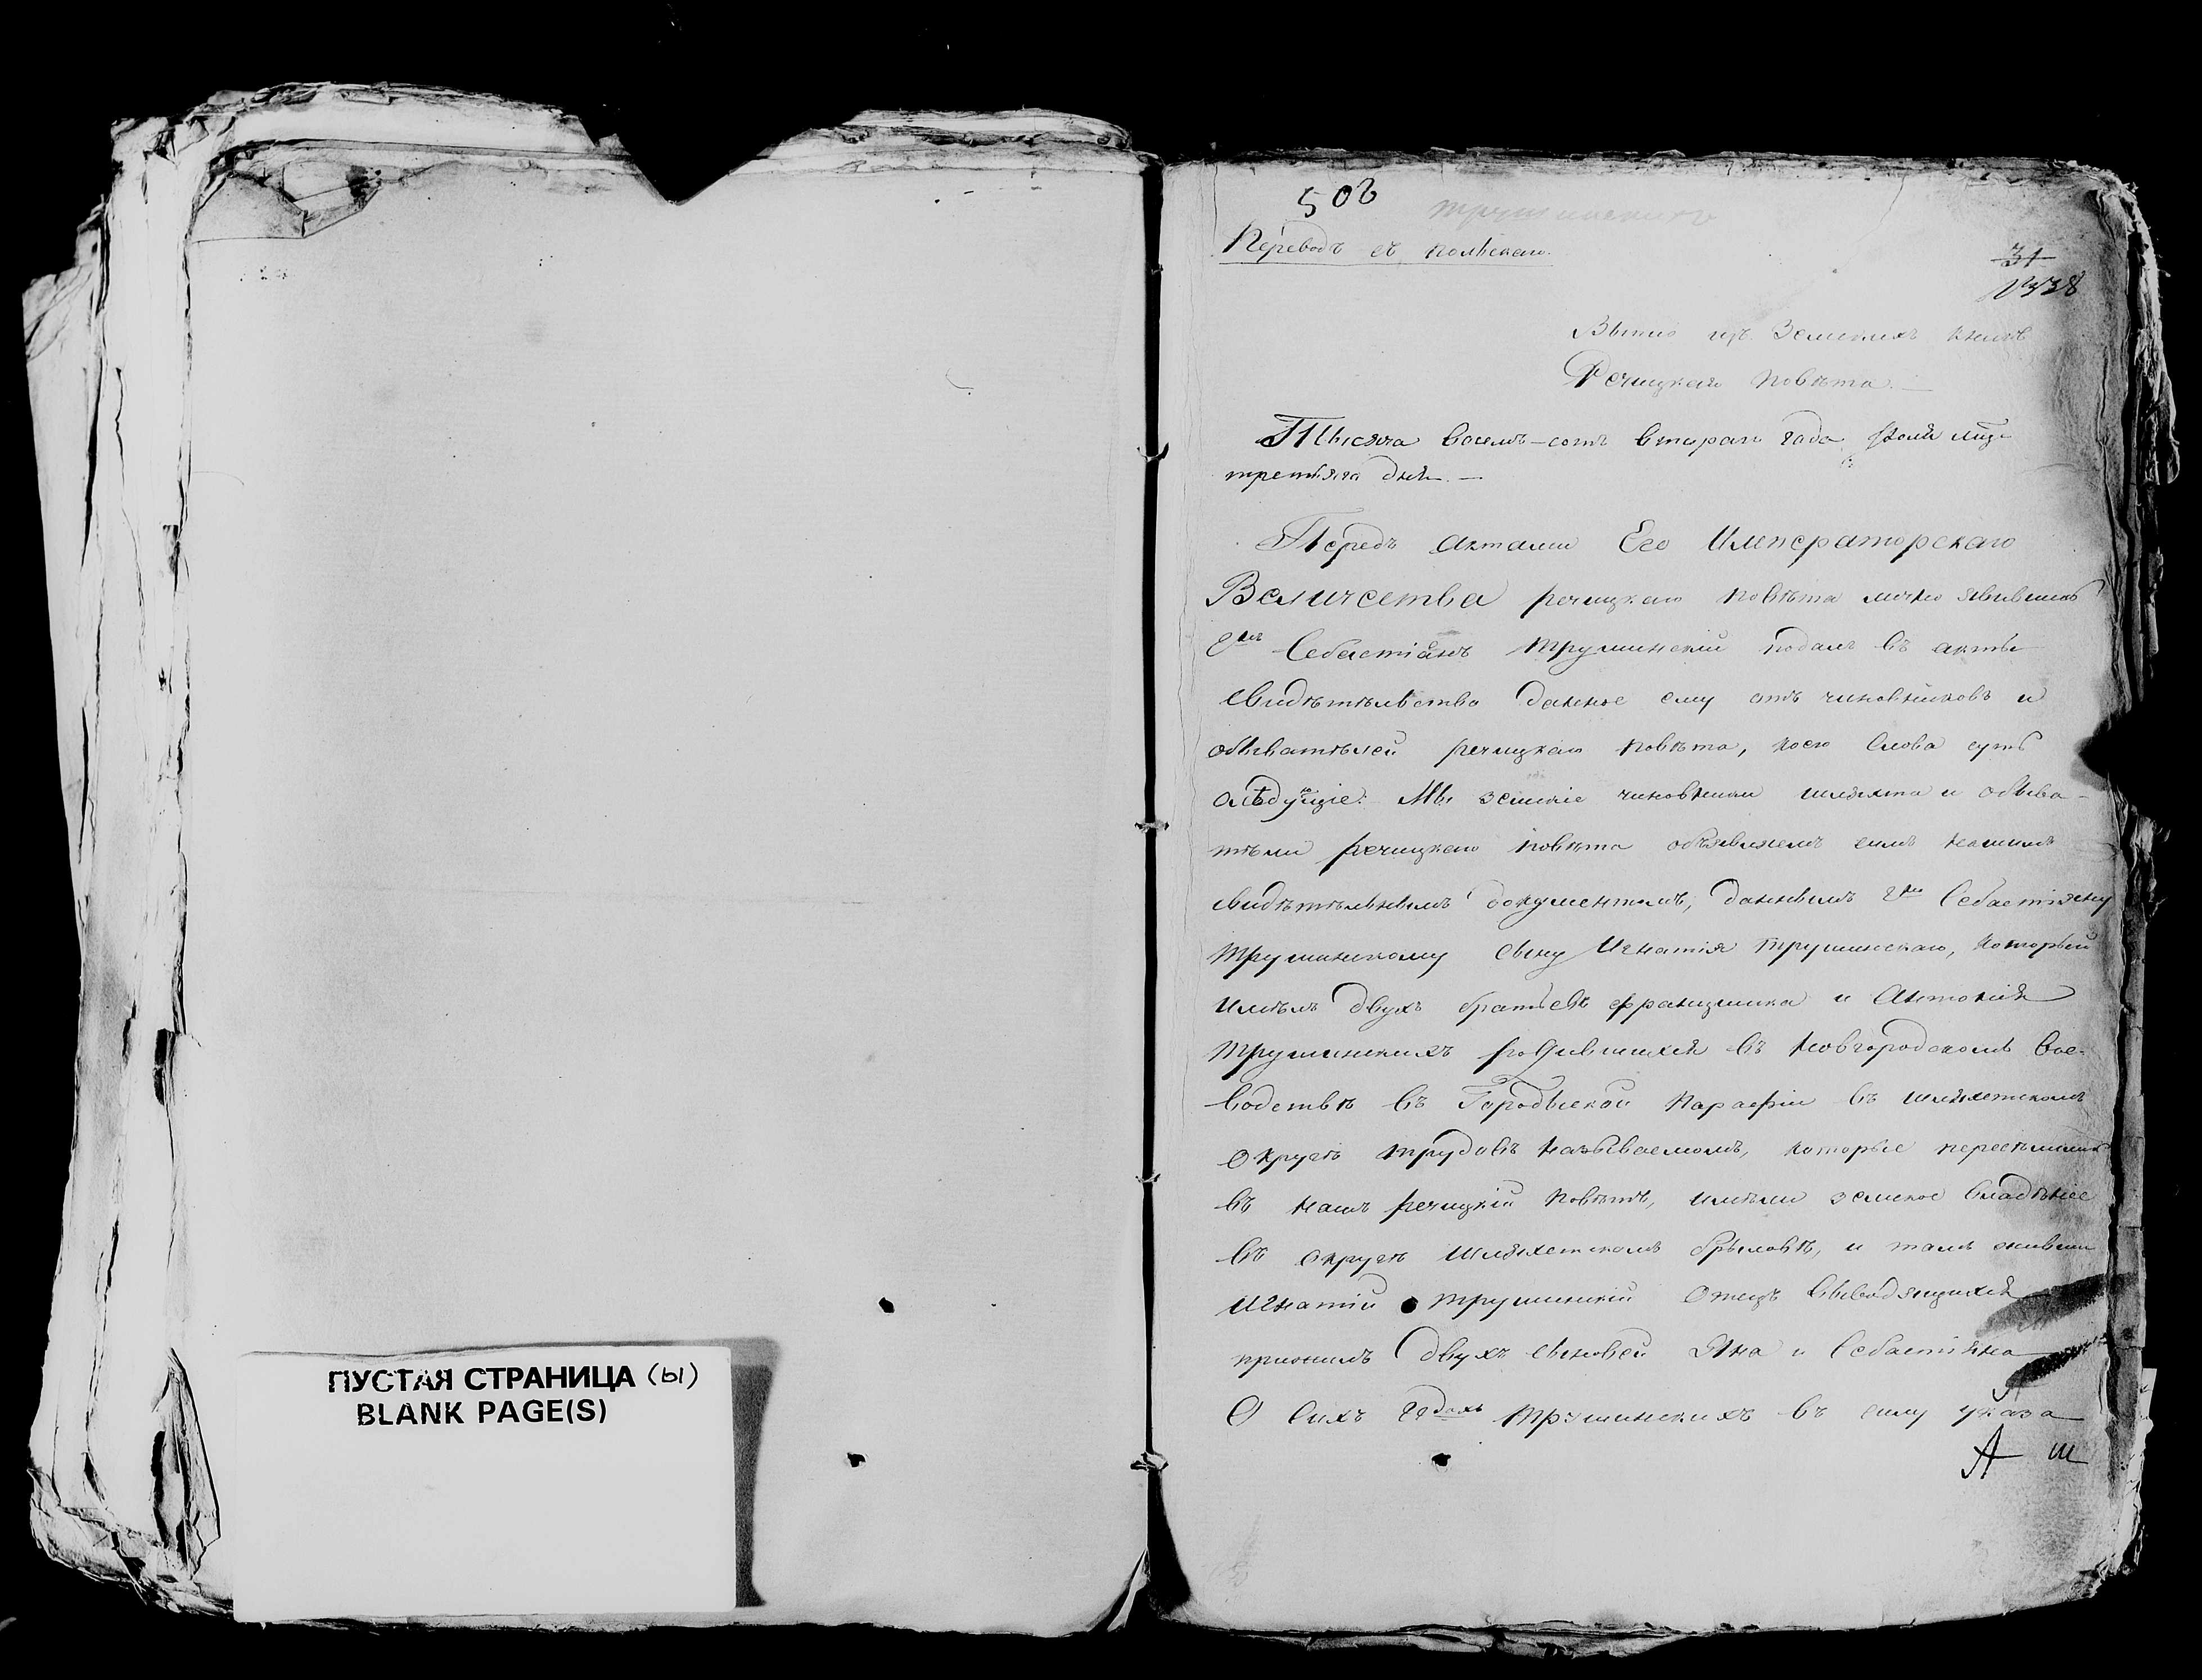 ПУСТАЯ СТРАНИЦА (ы)
BLANK PAGE(S)
508
Трушинскихъ
Переводъ съ польскаго.
31
338
Вытись изъ Земскихъ книгъ
Речицкаго повѣта. —
Тысяча восемь-сотъ втораго года Іюля мца
третьяго дня. —
Передъ актами Его Императорскаго
Величества речицкаго повѣта лично явившись
Себастіанъ Трушинскій подалъ въ акты
свидѣтѣльство данное ему отъ чиновниковъ и
обывателей речицкаго повѣта, коего слова суть
слѣдующіе: Мы земскіе чиновники шляхта и обыва-
тѣли речицкаго повѣта объявляемъ симъ нашимъ
свидѣтѣльнымъ документомъ, даннымъ Себастіяну
Трушинскому сыну Игнатія Трушинскаго, который
имѣлъ двухъ братьевъ Францишка и Антонія
Трушинскихъ родившихся въ Новгородскомъ вое-
водствѣ въ Городыской парафіи въ шляхетскомъ
округѣ Трудовъ называемомъ, которые переселились
въ нашъ речицкій повѣтъ, имѣли земское владѣніе
въ округѣ шляхетскомъ Брылевѣ, и тамъ живши
Игнатій Трушинскій Отецъ выводящихся
прижилъ двухъ сыновей Яна и Себастіяна
О сихъ Трушинскихъ въ силу указа
А Ш